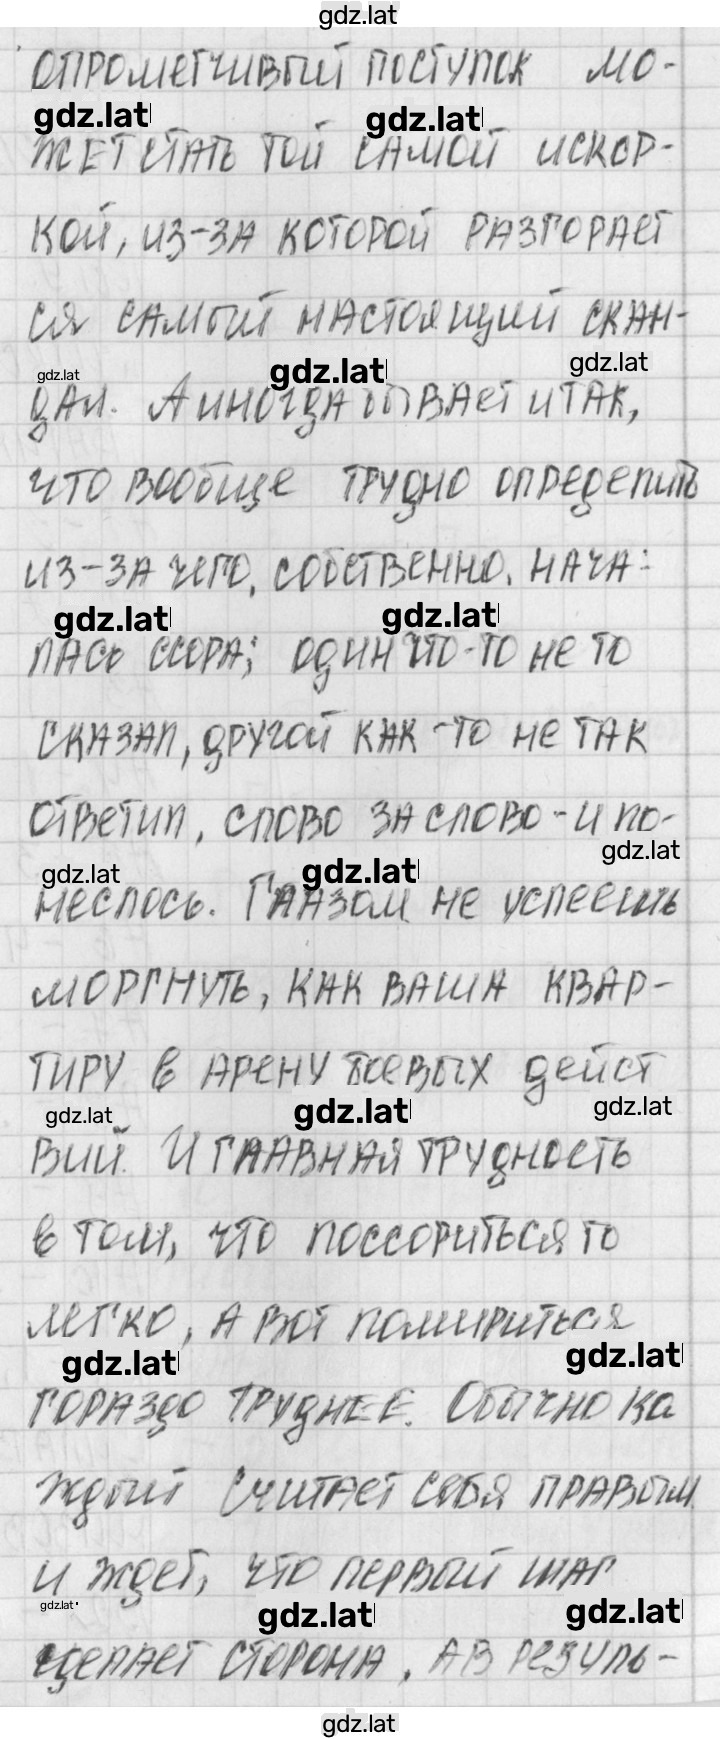 gdz.lat
опрометчивый поступок мо-
gdz.lat gdz.lat
жет стать той самой искор-
кой, из-за которой разгорает
ся самый настоящий скан-
gdz.lat gdz.lat gdz.lat
дал. А иногда бывает и так,
что вообще трудно определить
из-за чего, собственно, нача-
gdz.lat gdz.lat
лась ссора; один что-то не то
сказал, другой как-то не так
ответил, слово за слово - и по-
gdz.lat gdz.lat gdz.lat
неслось. Глазом не успеешь
моргнуть, как ваша квар-
тиру в арену боевых дейст
gdz.lat gdz.lat gdz.lat
вий. И главная трудность
в том, что поссориться то
легко, а вот помириться
gdz.lat gdz.lat
гораздо труднее. Обычно ка
ждый считает себя правым
и ждет, что первый шаг
gdz.lat gdz.lat gdz.lat
сторона, а в резуль-
gdz.lat